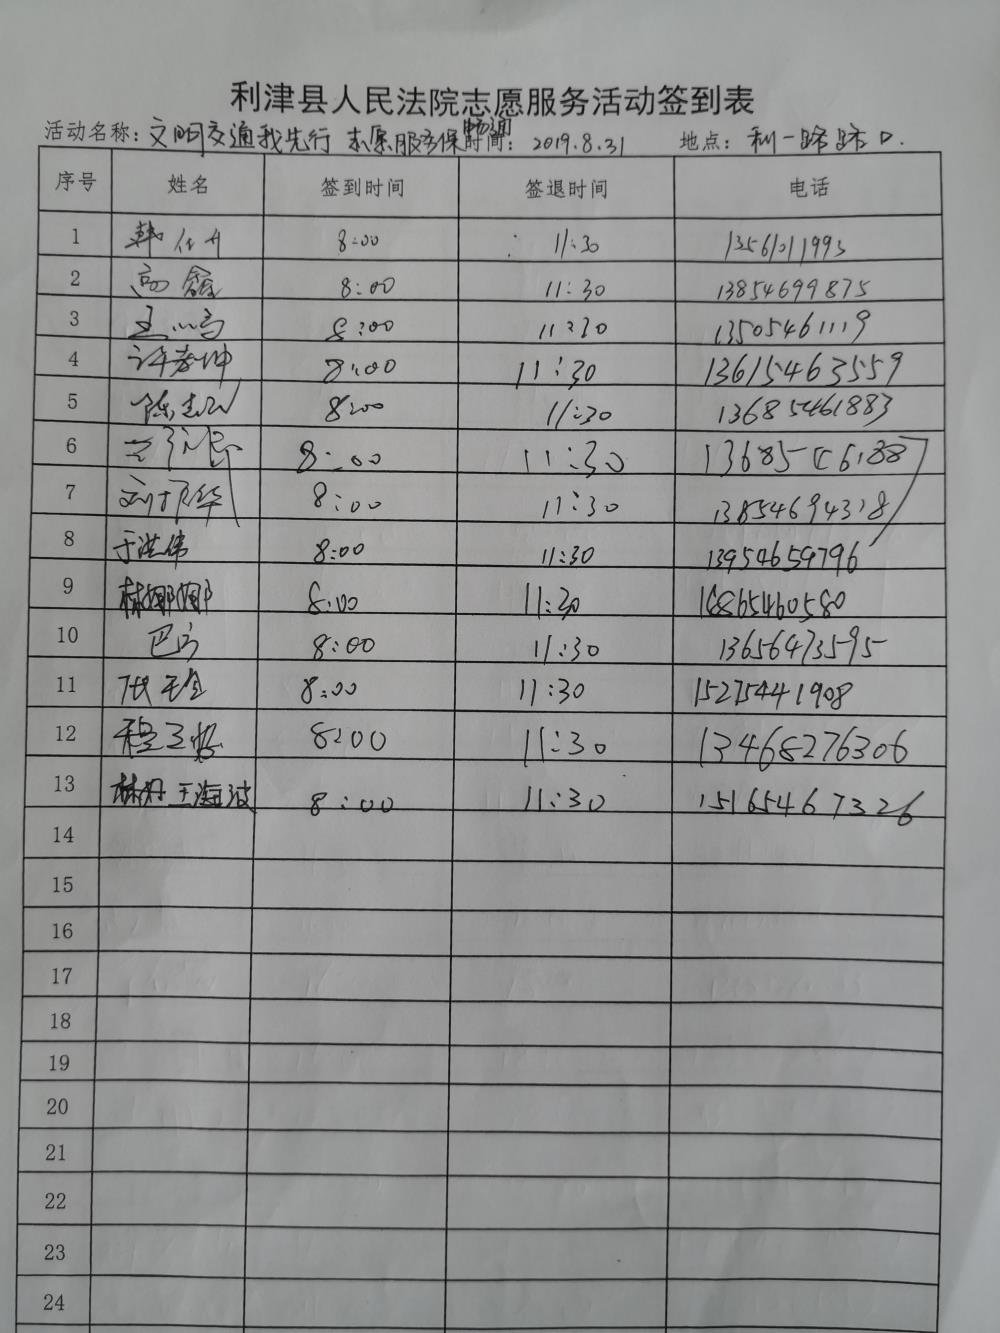 利津县人民法院志愿服务活动签到表
活动名称：文明交通我先行 志愿服务保畅通 时间：2019.8.31 地点：利一路路口.
序号 姓名 签到时间 签退时间 电话
1 8:00 11:30 13561011993
2 高鑫 8:00 11:30 13854699875
3 8:00 11:30 13505461119
4 许孝坤 8:00 11:30 13615463559
5 8:00 11:30 13685461883
6 8:00 11:30
7 8:00 11:30
8 于洪伟 8:00 11:30 13954659796
9 林娜娜 8:00 11:30 18865460580
10 巴方 8:00 11:30 13656473595
11 8:00 11:30 15275441908
12 8:00 11:30 13468276306
13 林丹 王海波 8:00 11:30 15165467326
14
15
16
17
18
19
20
21
22
23
24